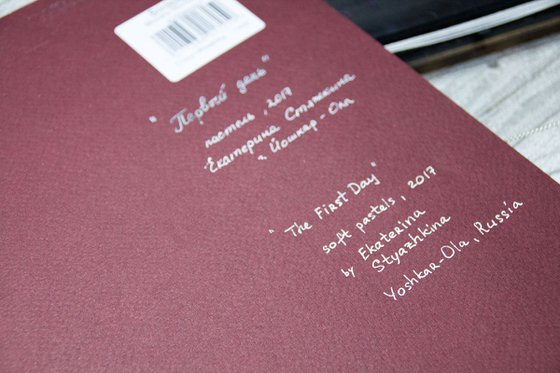 "Первый день"
пастель, 2017
Екатерина Стяжкина
г. Йошкар-Ола
"The First Day"
soft pastels, 2017
by Ekaterina
Styazhkina
Yoshkar-Ola, Russia